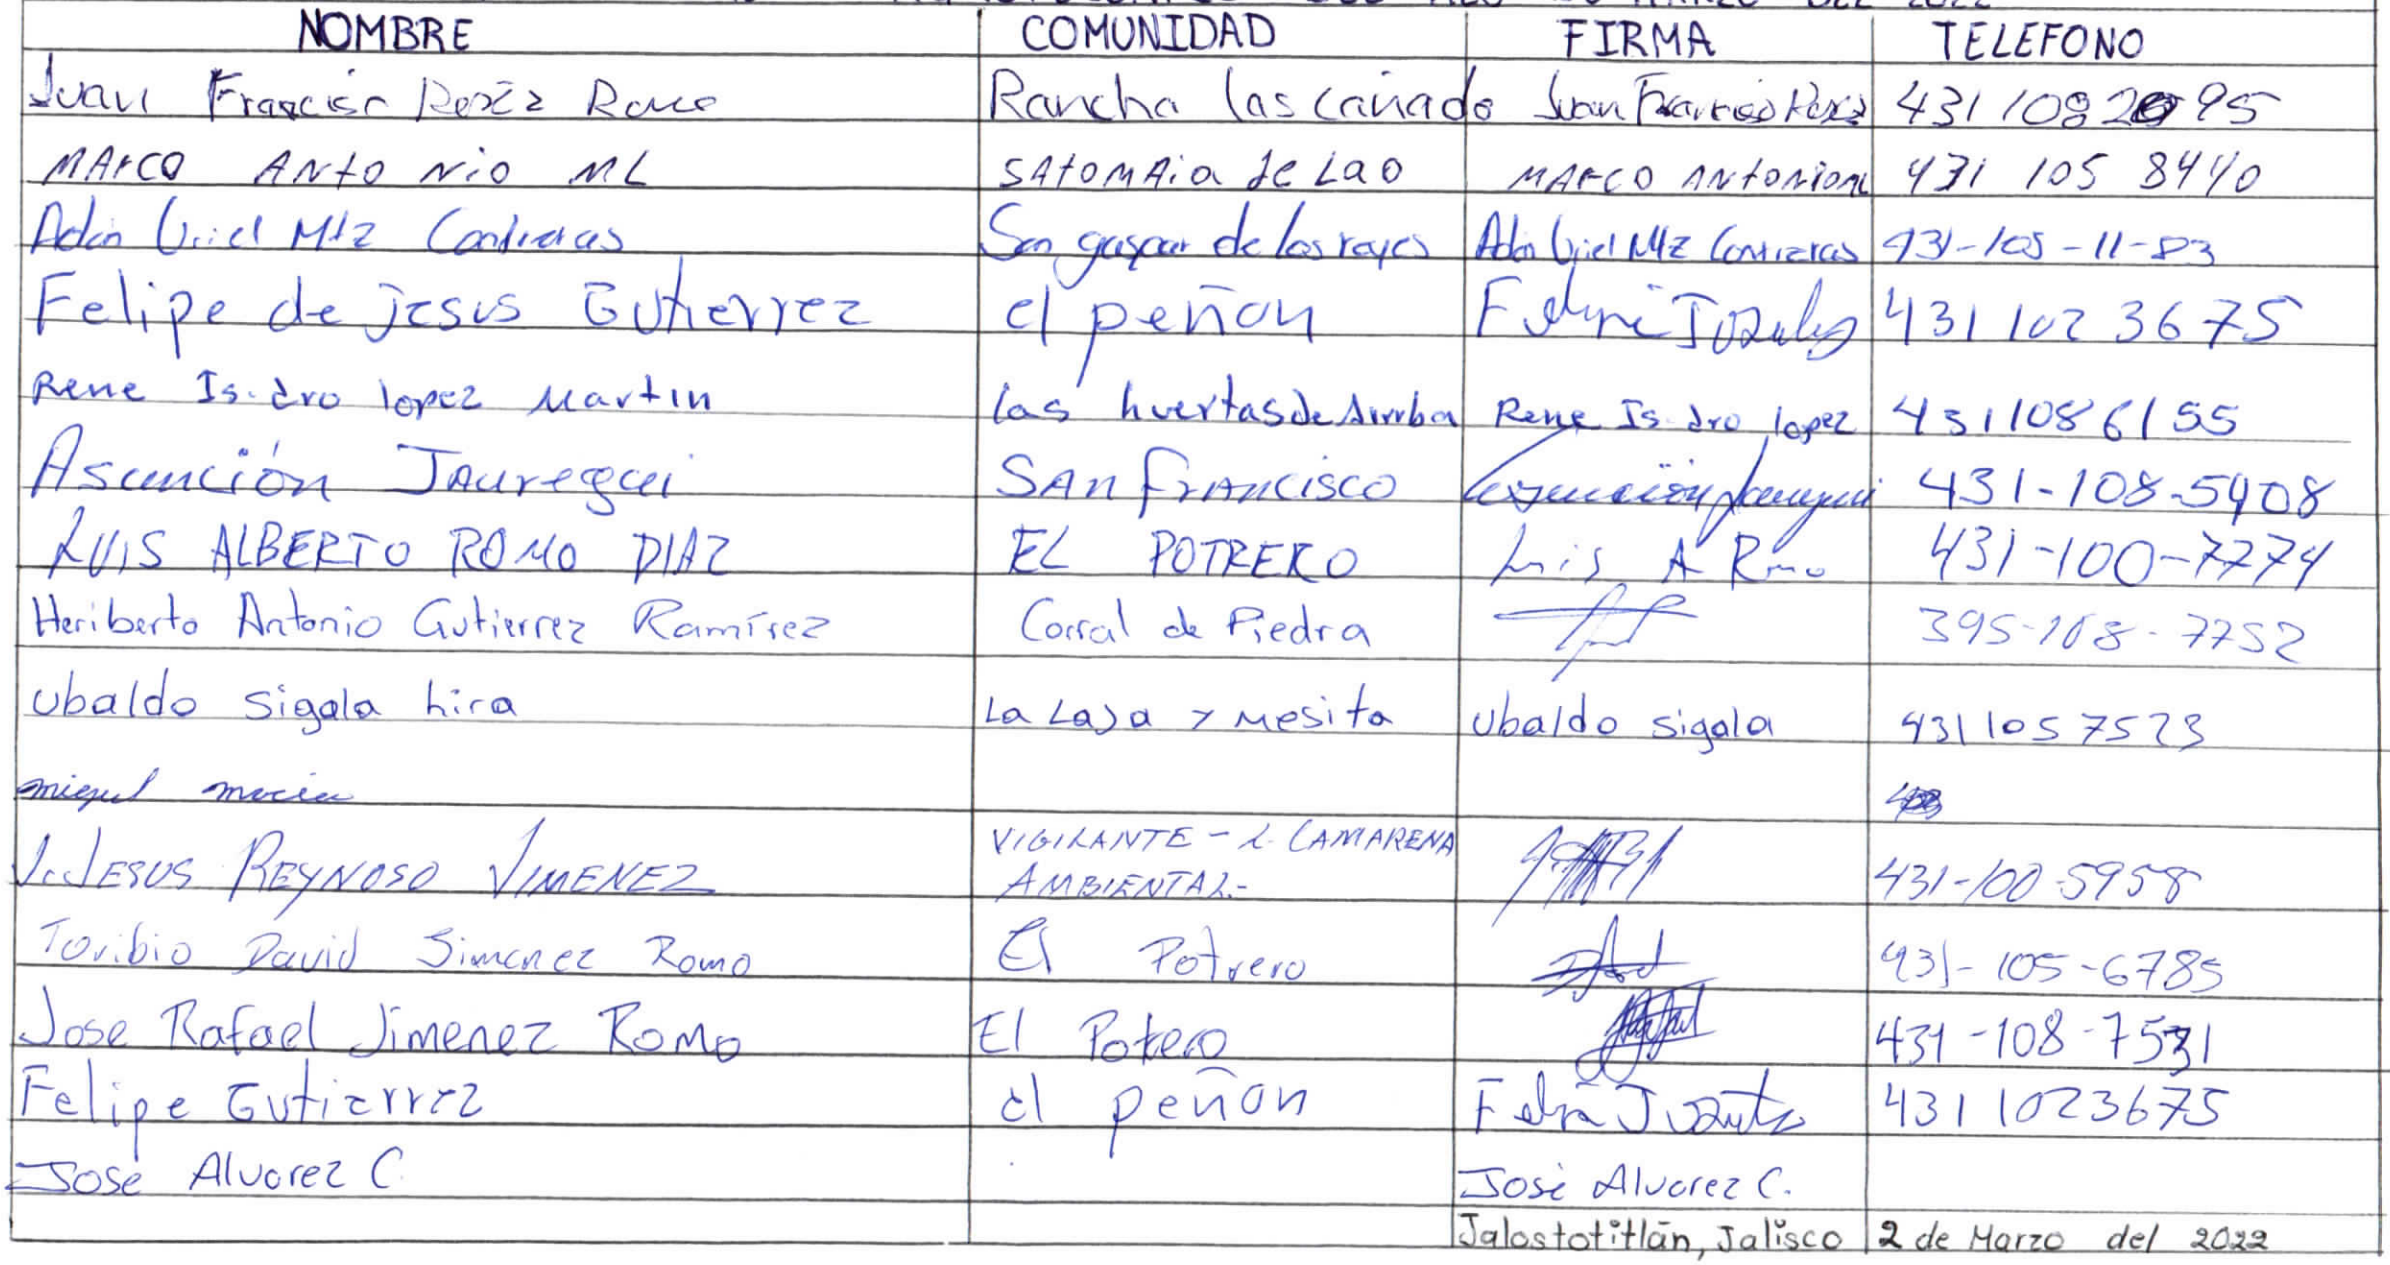 NOMBRE COMUNIDAD FIRMA TELEFONO
Juan Francisco Perez Romo Rancho las cañada Juan Francisco Perez 431 108 2095
MARCO ANTONIO ML SAtOMAia de LaO MARCO ANTONIOML 431 105 8440
Adán Uriel Mtz Contreras San gaspar de los reyes Adán Uriel Mtz Contreras 431-105-11-83
Felipe de jesus Gutierrez el peñon 431 102 3675
Rene Isidro lopez Martin las huertas de Arriba Rene Isidro lopez 431 108 6155
Asunción Jauregui SAN FRANCISCO Asunción Jauregui 431-108-5408
LUIS ALBERTO ROMO DIAZ EL POTRERO Luis A Romo 431-100-7774
Heriberto Antonio Gutierrez Ramírez Corral de Piedra 395-108-7752
Ubaldo Sigala Lira La Laja y Mesita Ubaldo Sigala 431 105 7523
miguel macias
J. JESUS REYNOSO JIMENEZ VIGILANTE - L. CAMARENA 431-100-5958
AMBIENTAL-
Toribio David Jimenez Romo El Potrero 431-105-6785
Jose Rafael Jimenez Romo El Potero 431-108-7531
Felipe Gutierrez el peñon 431 1023675
José Alvarez C. José Alvarez C.
Jalostotitlán, Jalisco 2 de Marzo del 2022